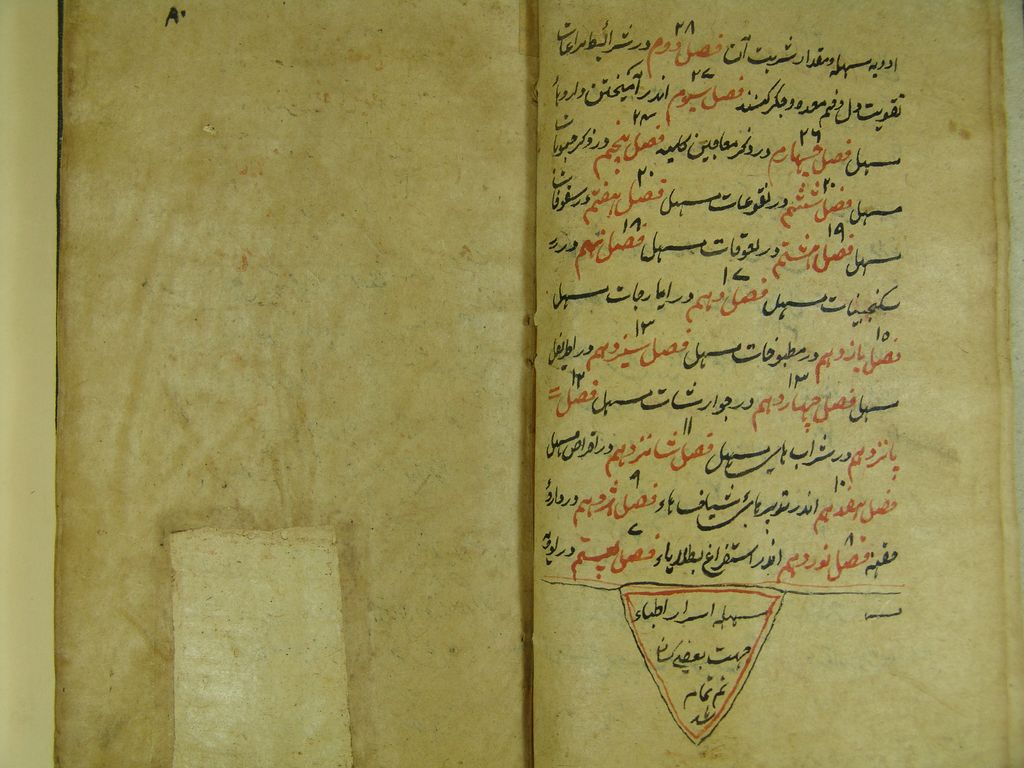 ۸۰
ادویه مسهله و مقدار شربت آن فصل دوم ۲۸ در شرائط مراعات
تقویت دل و فم معده و جگر کنند فصل سیوم ۲۷ اندر آمیختن داروهاء
مسهل فصل چهارم ۲۶ در ذکر معاجین کلیه فصل پنجم در ذکر حبوبات
مسهل فصل ششم ۲۰ در نقوعات مسهل فصل هفتم ۲۰ در سفوفات
مسهل فصل هشتم ۱۹ در لعوقات مسهل فصل نهم ۱۸ در
سکنجبینات مسهل فصل دهم ۱۷ در ایارجات مسهل
فصل یازدهم ۱۵ در مطبوخات مسهل فصل سیزدهم ۱۳ در اطریفل
مسهل فصل چهاردهم ۱۳ در جوارشات مسهل فصل ۱۲
پانزدهم در شراب های مسهل فصل شانزدهم ۱۱ در اقراص مسهل
فصل هفدهم ۱۰ اندر تدبیرهای شیاف هاء فصل هژدهم ۹ در داروء
مقیئه فصل نوزدهم ۸ اندر استفراغ بطلاهاء فصل بیستم ۷ در ادویه
مسهله اسرار اطباء
جهت بعضی کسان
تم تمام
شد